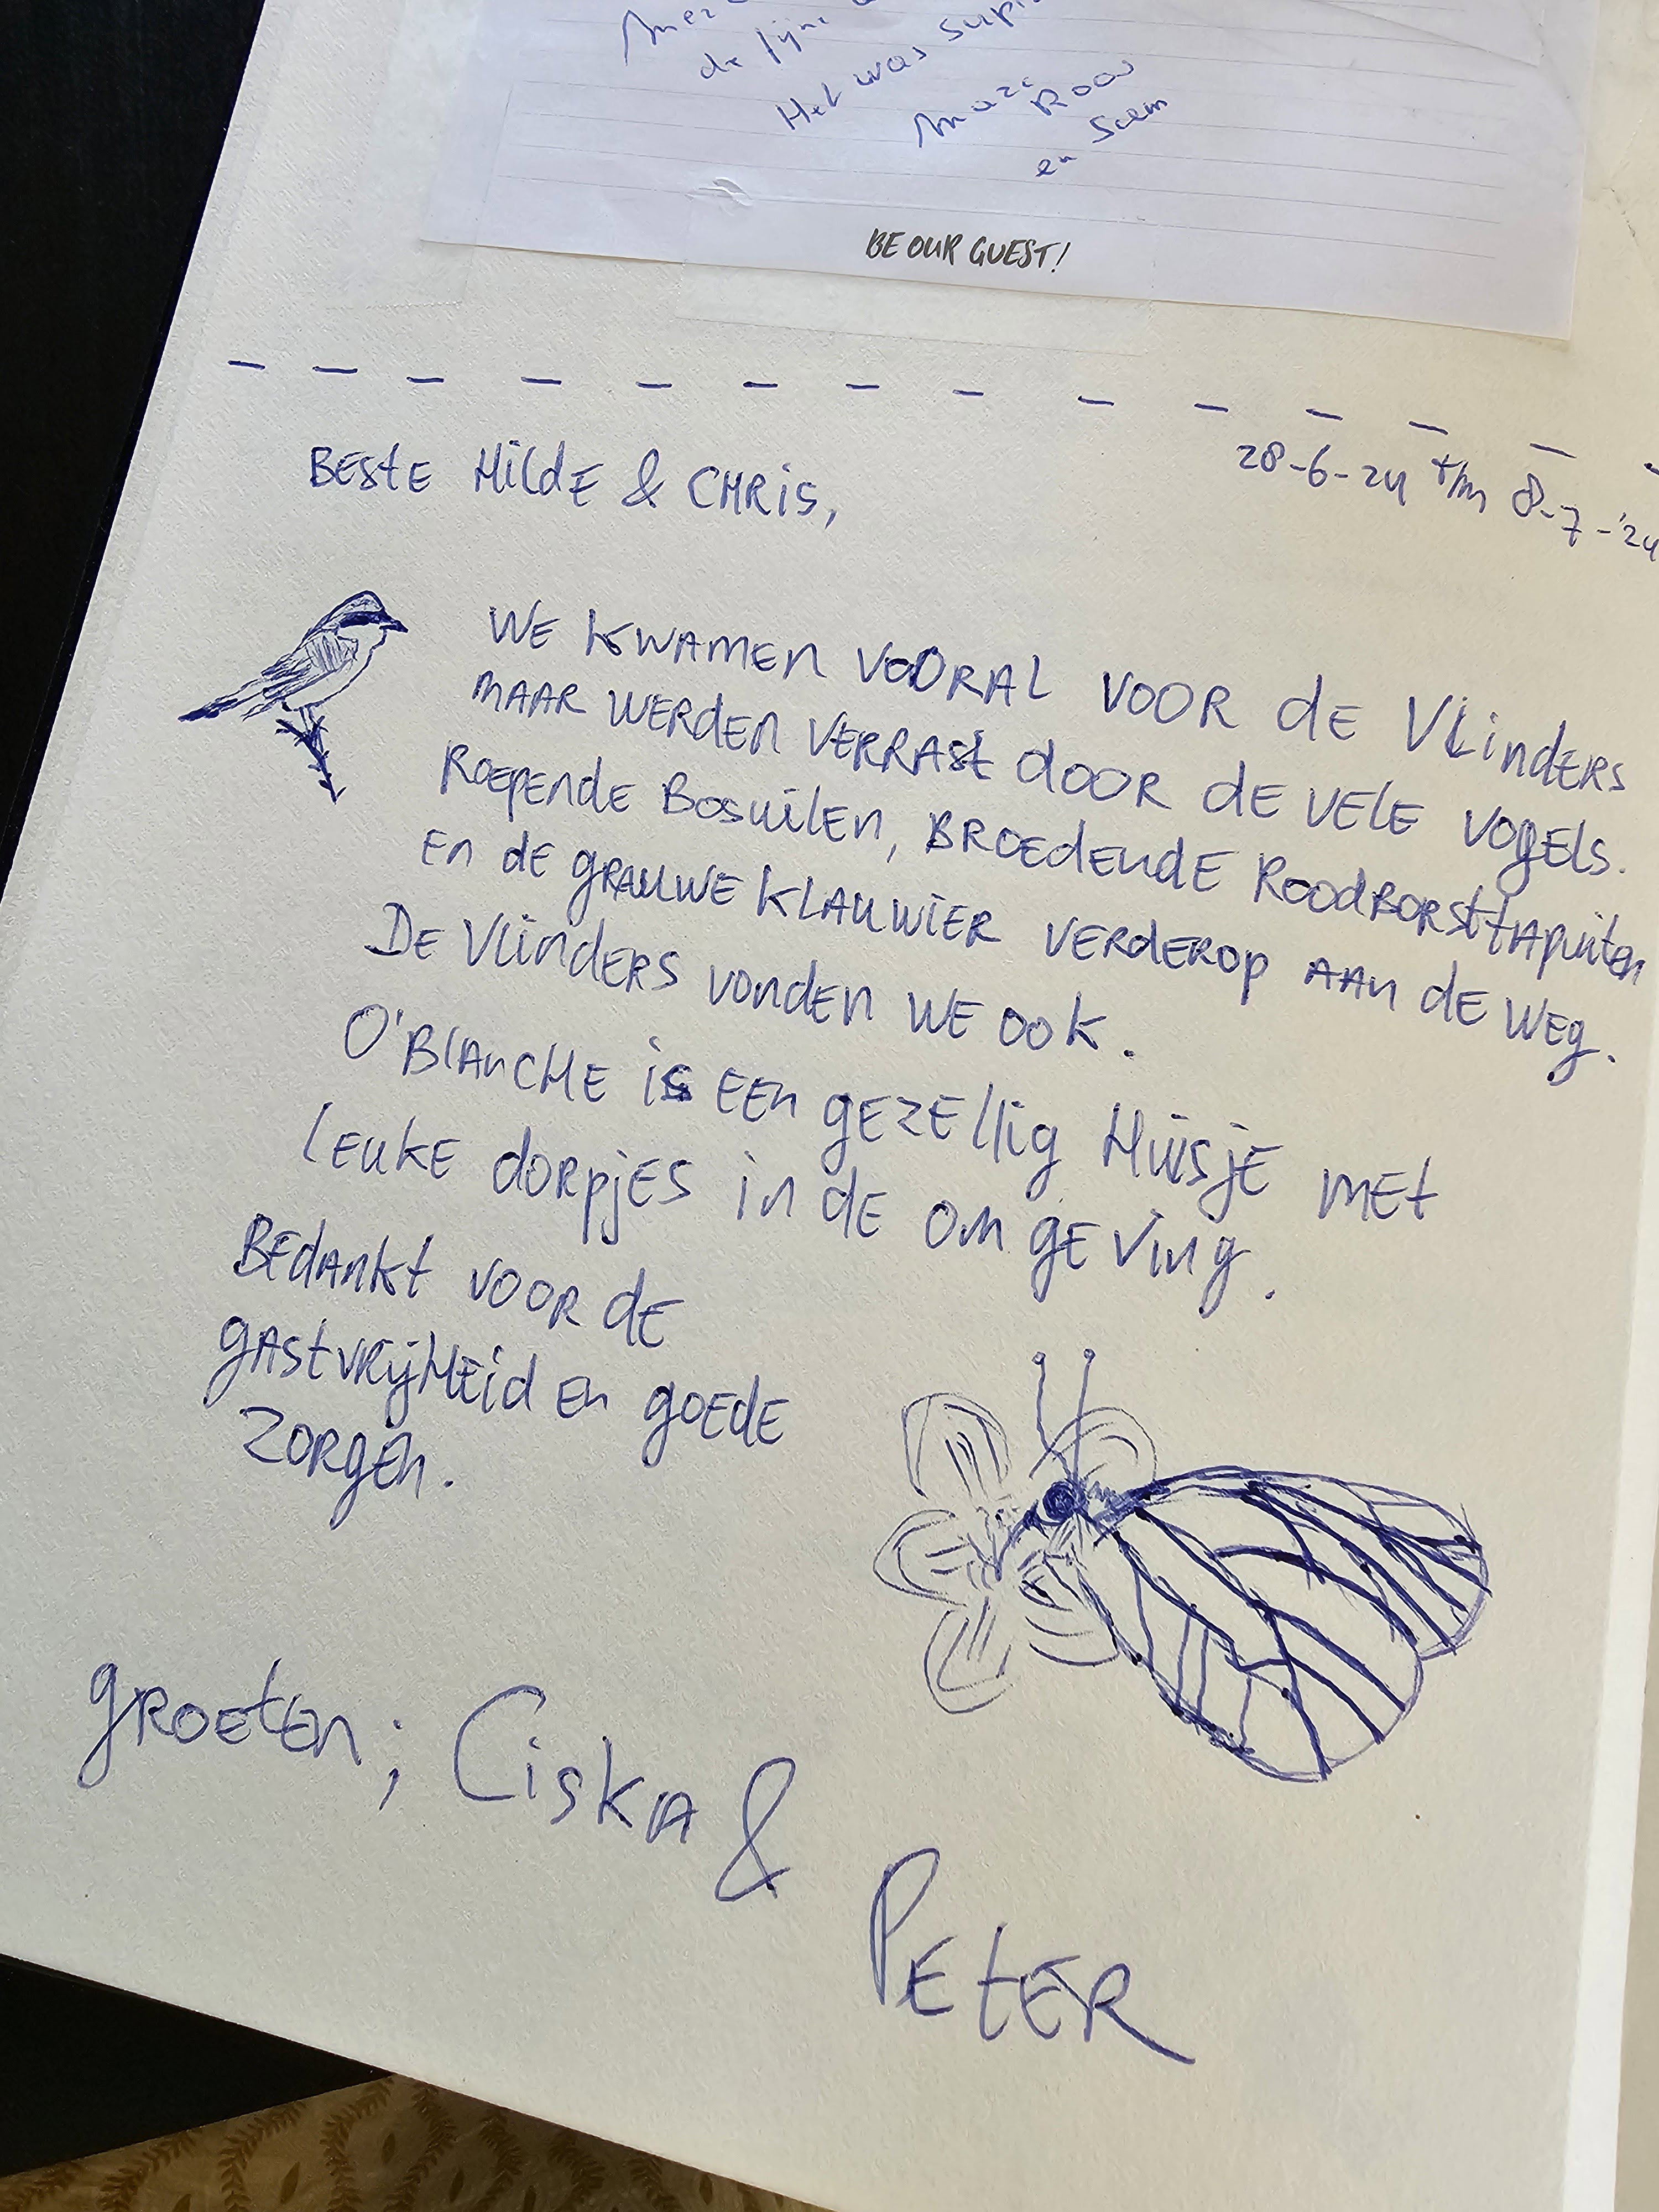 de fijne
Het was
en
BE OUR GUEST!
28-6-24 t/m 8-7-'24
Beste Hilde & Chris,
We kwamen vooral voor de vlinders
maar werden verrast door de vele vogels.
Roepende Bosuilen, broedende Roodborsttapuiten
en de grauwe klauwier verderop aan de weg.
De vlinders vonden we ook.
O'Blanche is een gezellig huisje met
leuke dorpjes in de omgeving.
Bedankt voor de
gastvrijheid en goede
zorgen.
groeten; Ciska &
Peter